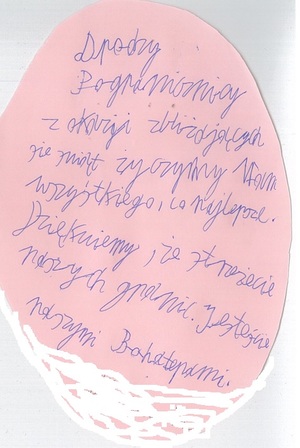 Drodzy
Pogranicznicy
z okazji zbliżających
się świąt życzymy Wam
wszystkiego, co najlepsze.
Dziękujemy, że strzeżecie
naszych granic. Jesteście
naszymi Bohaterami.